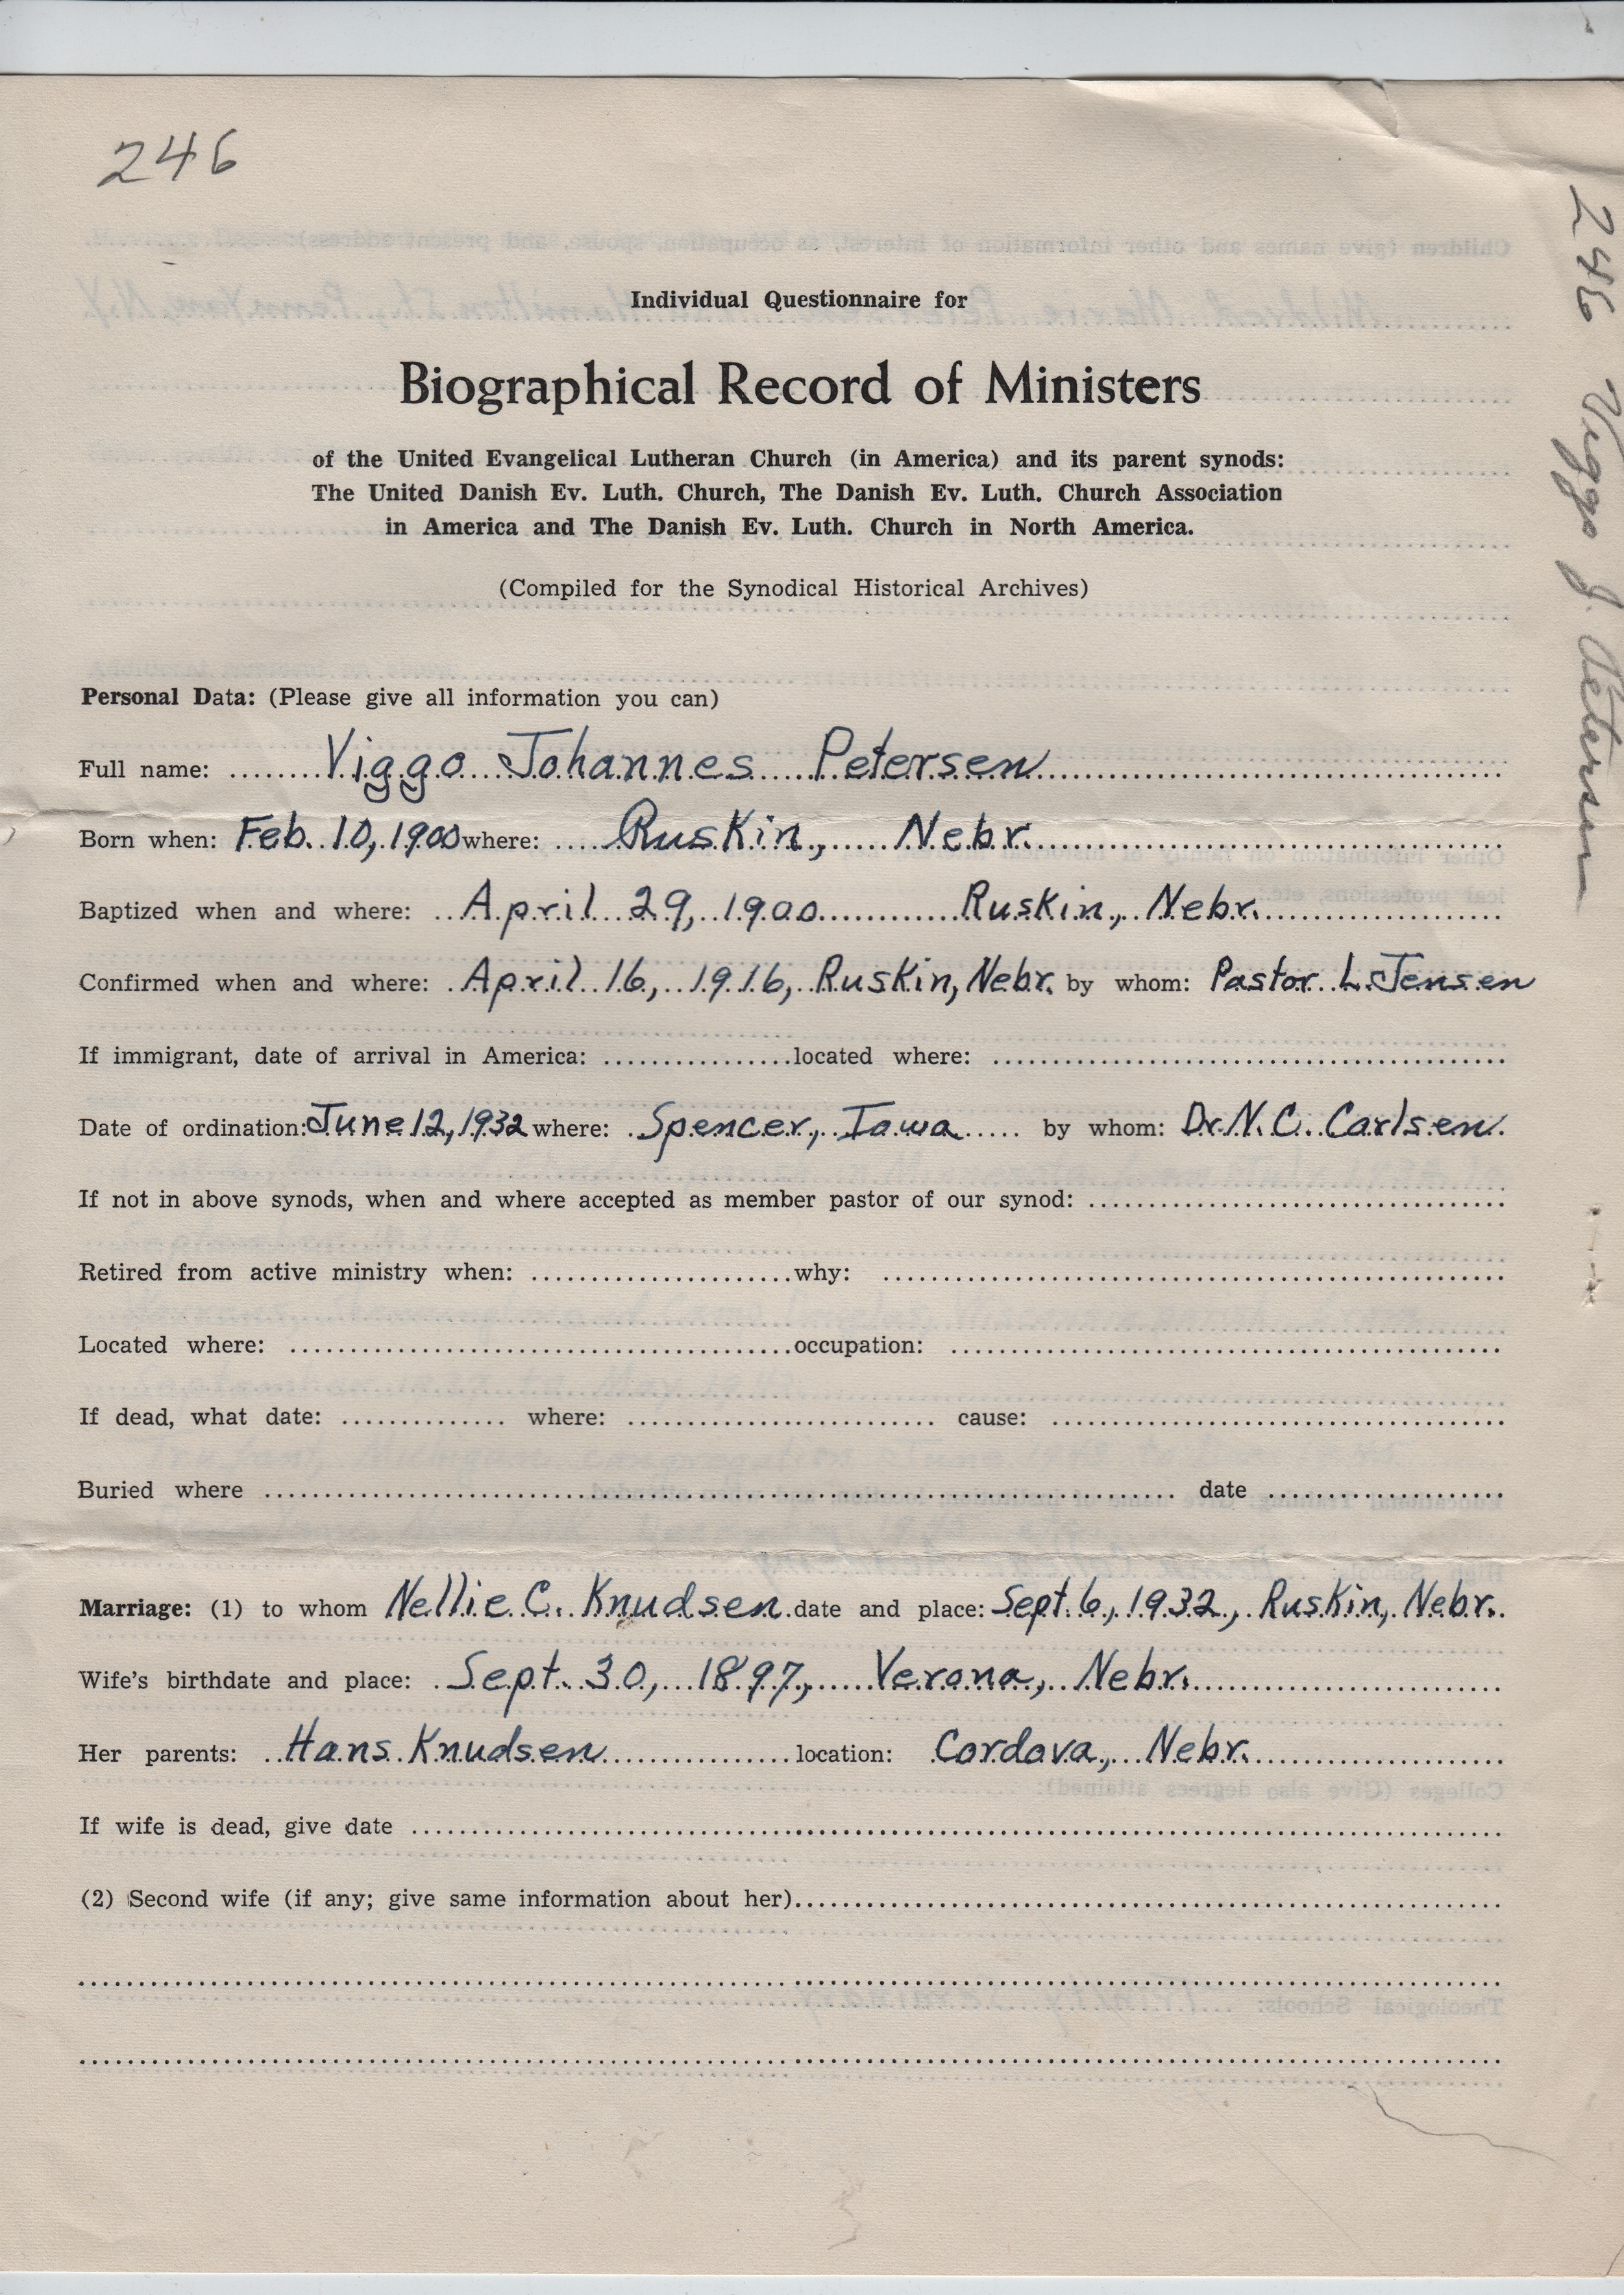 246
Individual Questionnaire for
Biographical Record of Ministers
of the United Evangelical Lutheran Church (in America) and its parent synods:
The United Danish Ev. Luth. Church, The Danish Ev. Luth. Church Association
in America and The Danish Ev. Luth. Church in North America.
(Compiled for the Synodical Historical Archives)
Personal Data: (Please give all information you can)
Full name: Viggo Johannes Petersen
Born when: Feb. 10, 1900 where: Ruskin, Nebr.
Baptized when and where: April 29, 1900 Ruskin, Nebr.
Confirmed when and where: April 16, 1916, Ruskin, Nebr. by whom: Pastor L. Jensen
If immigrant, date of arrival in America: located where:
Date of ordination: June 12, 1932 where: Spencer, Iowa by whom: Dr. N. C. Carlsen.
If not in above synods, when and where accepted as member pastor of our synod:
Retired from active ministry when: why:
Located where: occupation:
If dead, what date: where: cause:
Buried where date
Marriage: (1) to whom Nellie C. Knudsen date and place: Sept. 6, 1932, Ruskin, Nebr.
Wife's birthdate and place: Sept. 30, 1897, Verona, Nebr.
Her parents: Hans Knudsen location: Cordova, Nebr.
If wife is dead, give date
(2) Second wife (if any; give same information about her)
246 Viggo J. Petersen